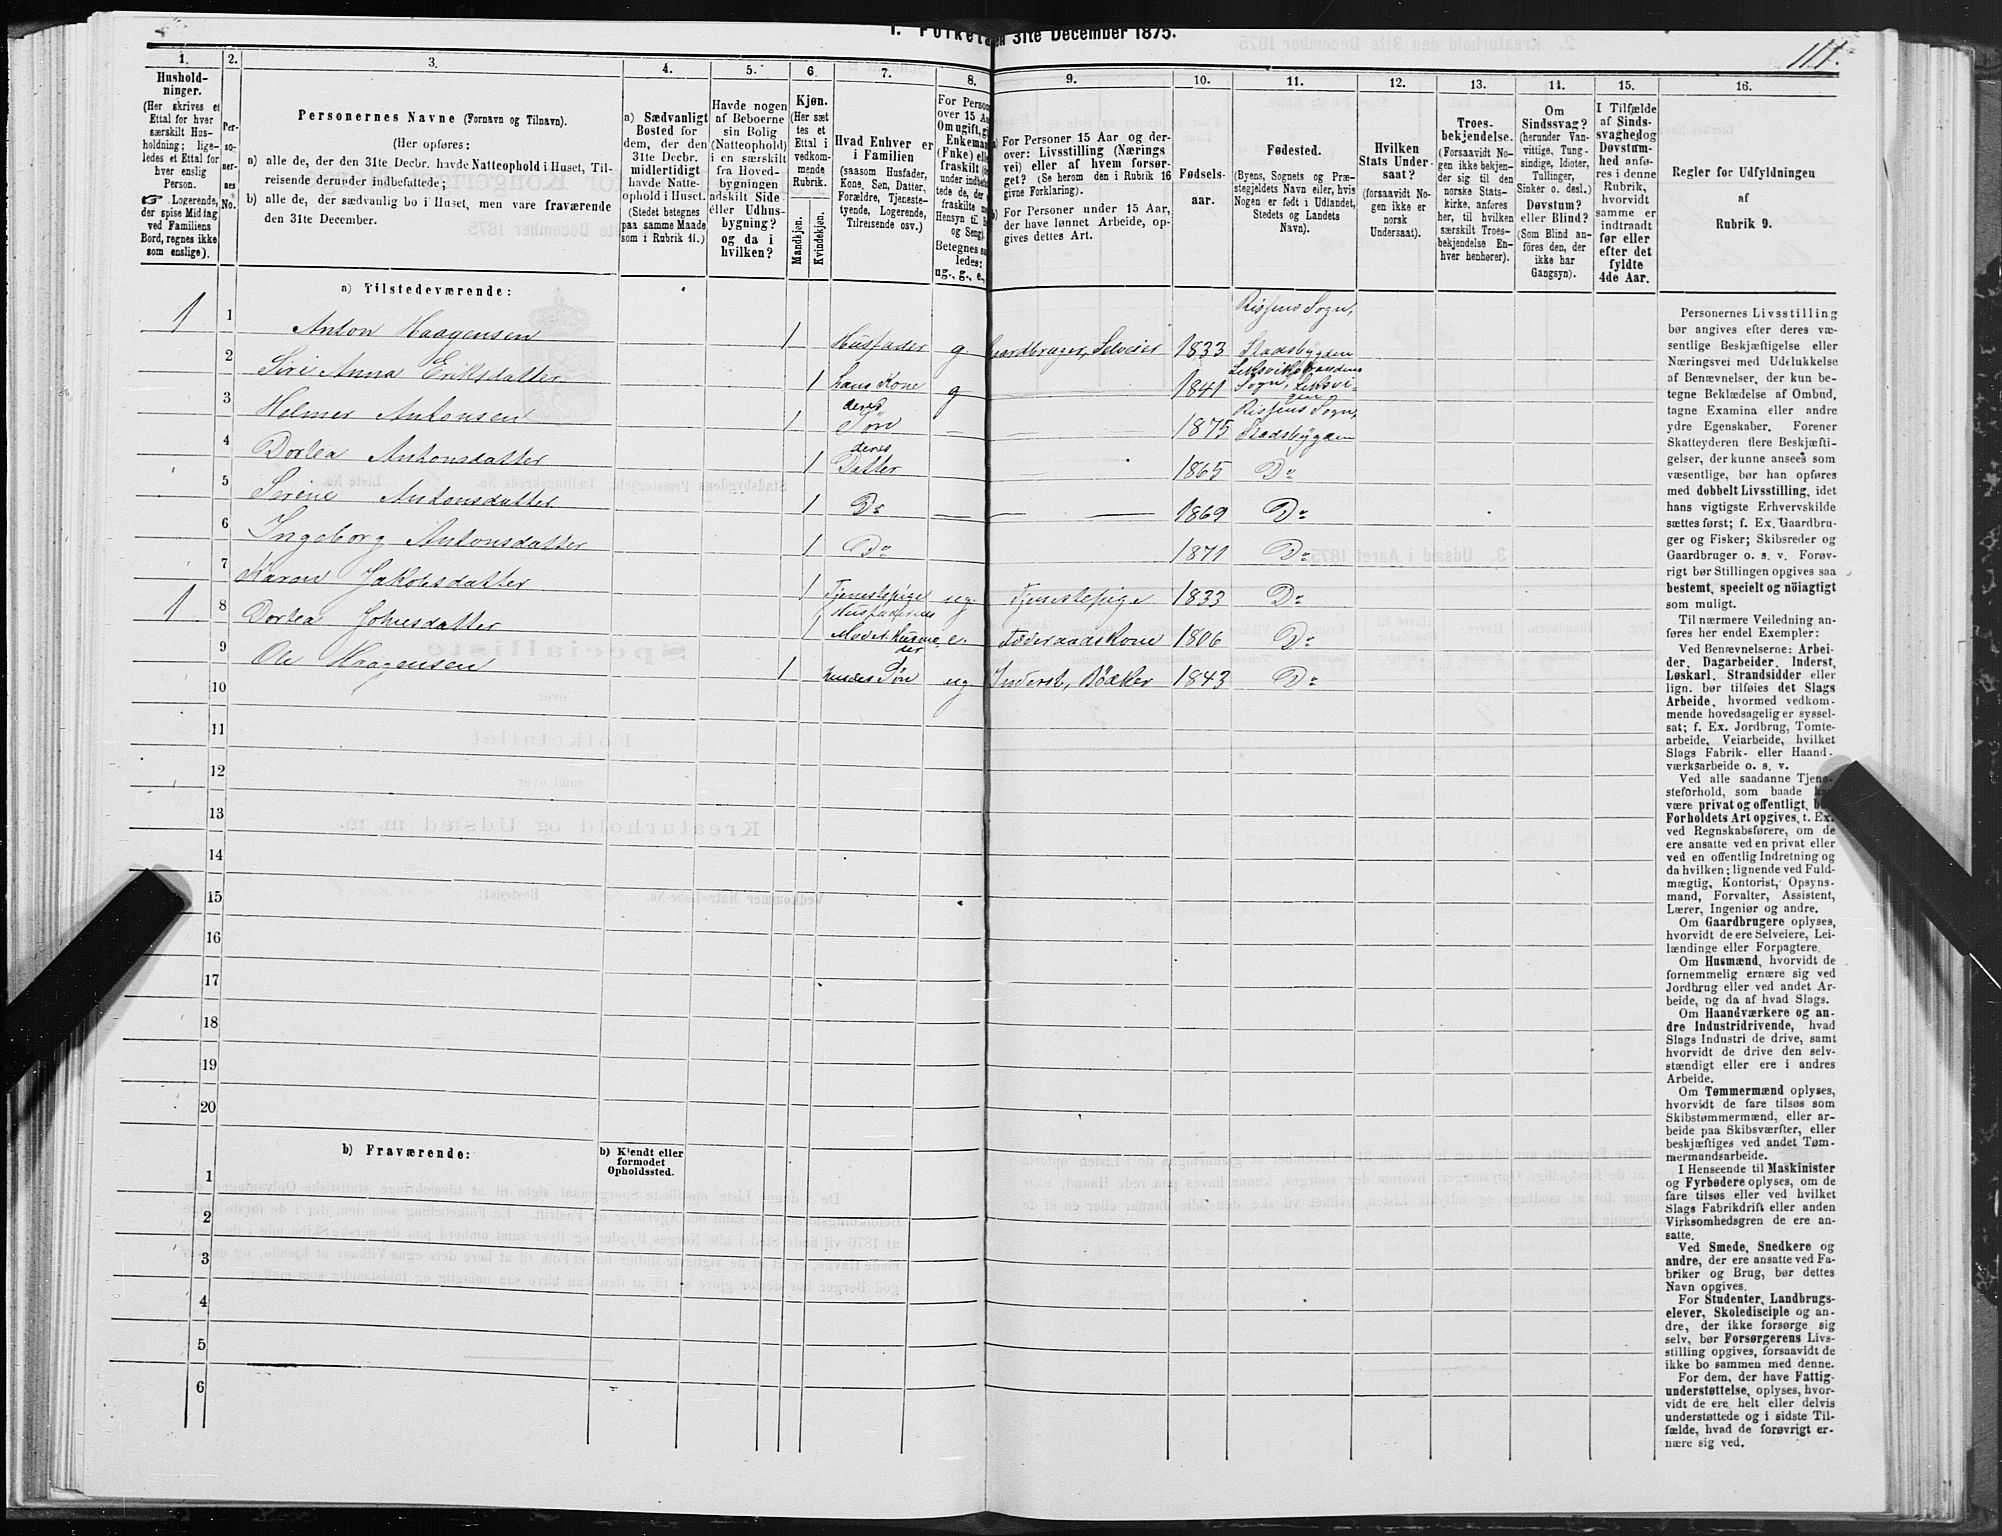 1. Folketal den 31te December 1875.
111.
1. 2. 3. 4. 5. 6. 7. 8. 9. 10. 11. 12. 13. 14. 15. 16.
Hushold-
ninger.
(Her skrives et
Ettal for hver
særskilt Hus-
holdning; lige-
ledes et Ettal for
hver enslig
Person.
☞ Logerende,
der spise Middag
ved Familiens
Bord, regnes ikke
som enslige).
Per-
so-
ner-
nes
No.
Personernes Navne (Fornavn og Tilnavn).
(Her opføres:
a) alle de, der den 31te Decbr. havde Natteophold i Huset, Til-
reisende derunder indbefattede;
b) alle de, der sædvanlig bo i Huset, men vare fraværende
den 31te December.
a) Sædvanligt
Bosted for
dem, der den
31te Decbr.
midlertidigt
havde Natte-
ophold i Huset.
(Stedet betegnes
paa samme Maade
som i Rubrik 11.)
Havde nogen
af Beboerne
sin Bolig
(Natteophold)
i en særskilt
fra Hoved-
bygningen
adskilt Side-
eller Udhus-
bygning?
og da i
hvilken?
Kjøn.
(Her sæt
tes et
Ettal i
vedkom-
mende
Rubrik.
Mandkjøn.
Kvindekjøn.
Hvad Enhver er
i Familien
(saasom Husfader,
Kone, Søn, Datter,
Forældre, Tjeneste-
tyende, Logerende,
Tilreisende osv.)
For Person
over 15 Aa
Om ugift, gi
Enkeman
(Fnke) elle
fraskilt (fo
under indbefat
tede de, der
fraskilte m
Hensyn til B
og Seng).
Betegnes saa
ledes:
ug., g., e.,
a) For Personer 15 Aar og der-
over: Livsstilling (Nærings
vei) eller af hvem forsør-
get? (Se herom den i Rubrik 16
givne Forklaring).
b) For Personer under 15 Aar,
der have lønnet Arbeide, op-
gives dettes Art.
Fødsels-
aar.
Fødested.
(Byens, Sognets og Præ-
stegjeldets Navn eller, hvis
Nogen er født i Udlandet,
Stedets og Landets
Navn).
Hvilken
Stats Under-
saat?
(forsaavidt No-
gen ikke er
norsk
Undersaat).
Troes-
bekjendelse.
(Forsaavidt No-
gen ikke bekjen-
der sig til den
norske Stats-
kirke, anføres
her, til hvilken
særskilt Troes-
bekjendelse En-
hver henhører).
Om
Sindssvag?
(herunder Van-
vittige, Tung-
sindige, Idioter,
Tullinger,
Sinker o. desl.)
Døvstum?
eller Blind?
(Som Blind an-
føres den, der
ikke har
Gangsyn).
I Tilfælde
af Sinds-
svaghed og
Døvstum-
hed anfø-
res i denne
Rubrik,
hvorvidt
samme er
indtraadt
før eller
efter det
fyldte
4de Aar.
Regler for Udfyldningen
af
Rubrik 9.
a) Tilstedeværende:
1 1 Anton Haagensen 1 Husfader g. Gaardbruger, Selveier 1833 Rissens Sogn, Stadsbygden
2 Siri Anna Eriksdatter 1 hans Kone g 1841 Leksvikstrandens Sogn, Leksvigen
3 Helmer Antonsen 1 deres Søn — — 1875 Rissens Sogn, Stadsbygden
4 Dorlea Antonsdatter 1 deres Datter — — 1865 Do
5 Serine Antonsdatter 1 Do — — — 1869 Do
6 Ingeborg Antonsdatter 1 Do — — 1871 Do
7 Karen Jakobsdatter 1 Tjenestepige ug. Tjenestepige 1833 Do
1 8 Dorlea Johnsdatter 1 Husfaderens Moder e. Føderaadskone 1806 Do
9 Ole Haagensen 1 Søn ug Inderst, Bødker 1843 Do
10
11
12
13
14
15
16
17
18
19
20
b) Fraværende:
b) Kjendt eller
formodet
Opholdssted.
1
2
3
4
5
6
Personernes Livsstilling
bør angives efter deres væ-
sentlige Beskjæftigelse eller
Næringsvei med Udelukkelse
af Benævnelser, der kun be-
tegne Beklædelse af Ombud,
tagne Examina eller andre
ydre Egenskaber. Forener
Skatteyderen flere Beskjæfti-
gelser, der kunne ansees som
væsentlige, bør han opføres
med dobbelt Livsstilling, idet
hans vigtigste Erhvervskilde
sættes først; f. Ex. Gaardbru-
ger og Fisker; Skibsreder og
Gaardbruger o. s. v. Forøv-
rigt bør Stillingen opgives saa
bestemt, specielt og nöiagtigt
som muligt.
Til nærmere Veiledning an-
føres her endel Exempler:
Ved Benævnelserne: Arbei-
der, Dagarbeider, Inderst,
Løskarl, Strandsidder eller
lign. bør tilføies det Slags
Arbeide, hvormed vedkom-
mende hovedsagelig er syssel-
sat; f. Ex. Jordbrug, Tomte-
arbeide, Veiarbeide, hvilket
Slags Fabrik- eller Haand-
værksarbeide o. s. v.
Ved alle saadanne Tjene-
steforhold, som baade kan
være privat og offentligt, bør
Forholdets Art opgives, t. Ex.
ved Regnskabsførere, om de
ere ansatte ved en privat eller
ved en offentlig Indretning og
da hvilken; lignende ved Fuld-
mægtig, Kontorist, Opsyns-
mand, Forvalter, Assistent,
Lærer, Ingeniør og andre.
Om Gaardbrugere oplyses,
hvorvidt de ere Selveiere, Lei-
lændinge eller Forpagtere.
Om Husmænd, hvorvidt de
fornemmelig ernære sig ved
Jordbrug eller ved andet Ar-
beide, og da af hvad Slags.
Om Haandværkere og an-
dre Industridrivende, hvad
Slags Industri de drive, samt
hvorvidt de drive den selv-
stændigt eller ere i andres
Arbeide.
Om Tømmermænd oplyses,
hvorvidt de fare tilsøs som
Skibstømmermænd, eller ar-
beide paa Skibsværfter, eller
beskjæftiges ved andet Tøm-
mermandsarbeide.
I Henseende til Maskinister
og Fyrbødere oplyses, om de
fare tilsøs eller ved hvilket
Slags Fabrikdrift eller anden
Virksomhedsgren de ere an-
satte.
Ved Smede, Snedkere og
andre, der ere ansatte ved Fa-
briker og Brug, bør dettes
Navn opgives.
For Studenter, Landbrugs-
elever, Skoledisciple og an-
dre, der ikke forsørge sig
selv, bør Forsørgerens Livs-
stilling opgives, forsaavidt de
ikke bo sammen med denne.
For dem, der have Fattig-
understøttelse, oplyses, hvor-
vidt de ere helt eller delvis
understøttede og i sidste Til-
fælde, hvad de forøvrigt er-
nære sig ved.